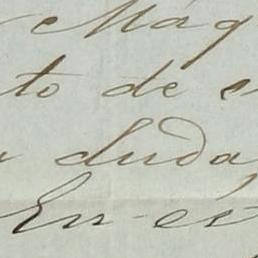 Maq
to de
duda
En es